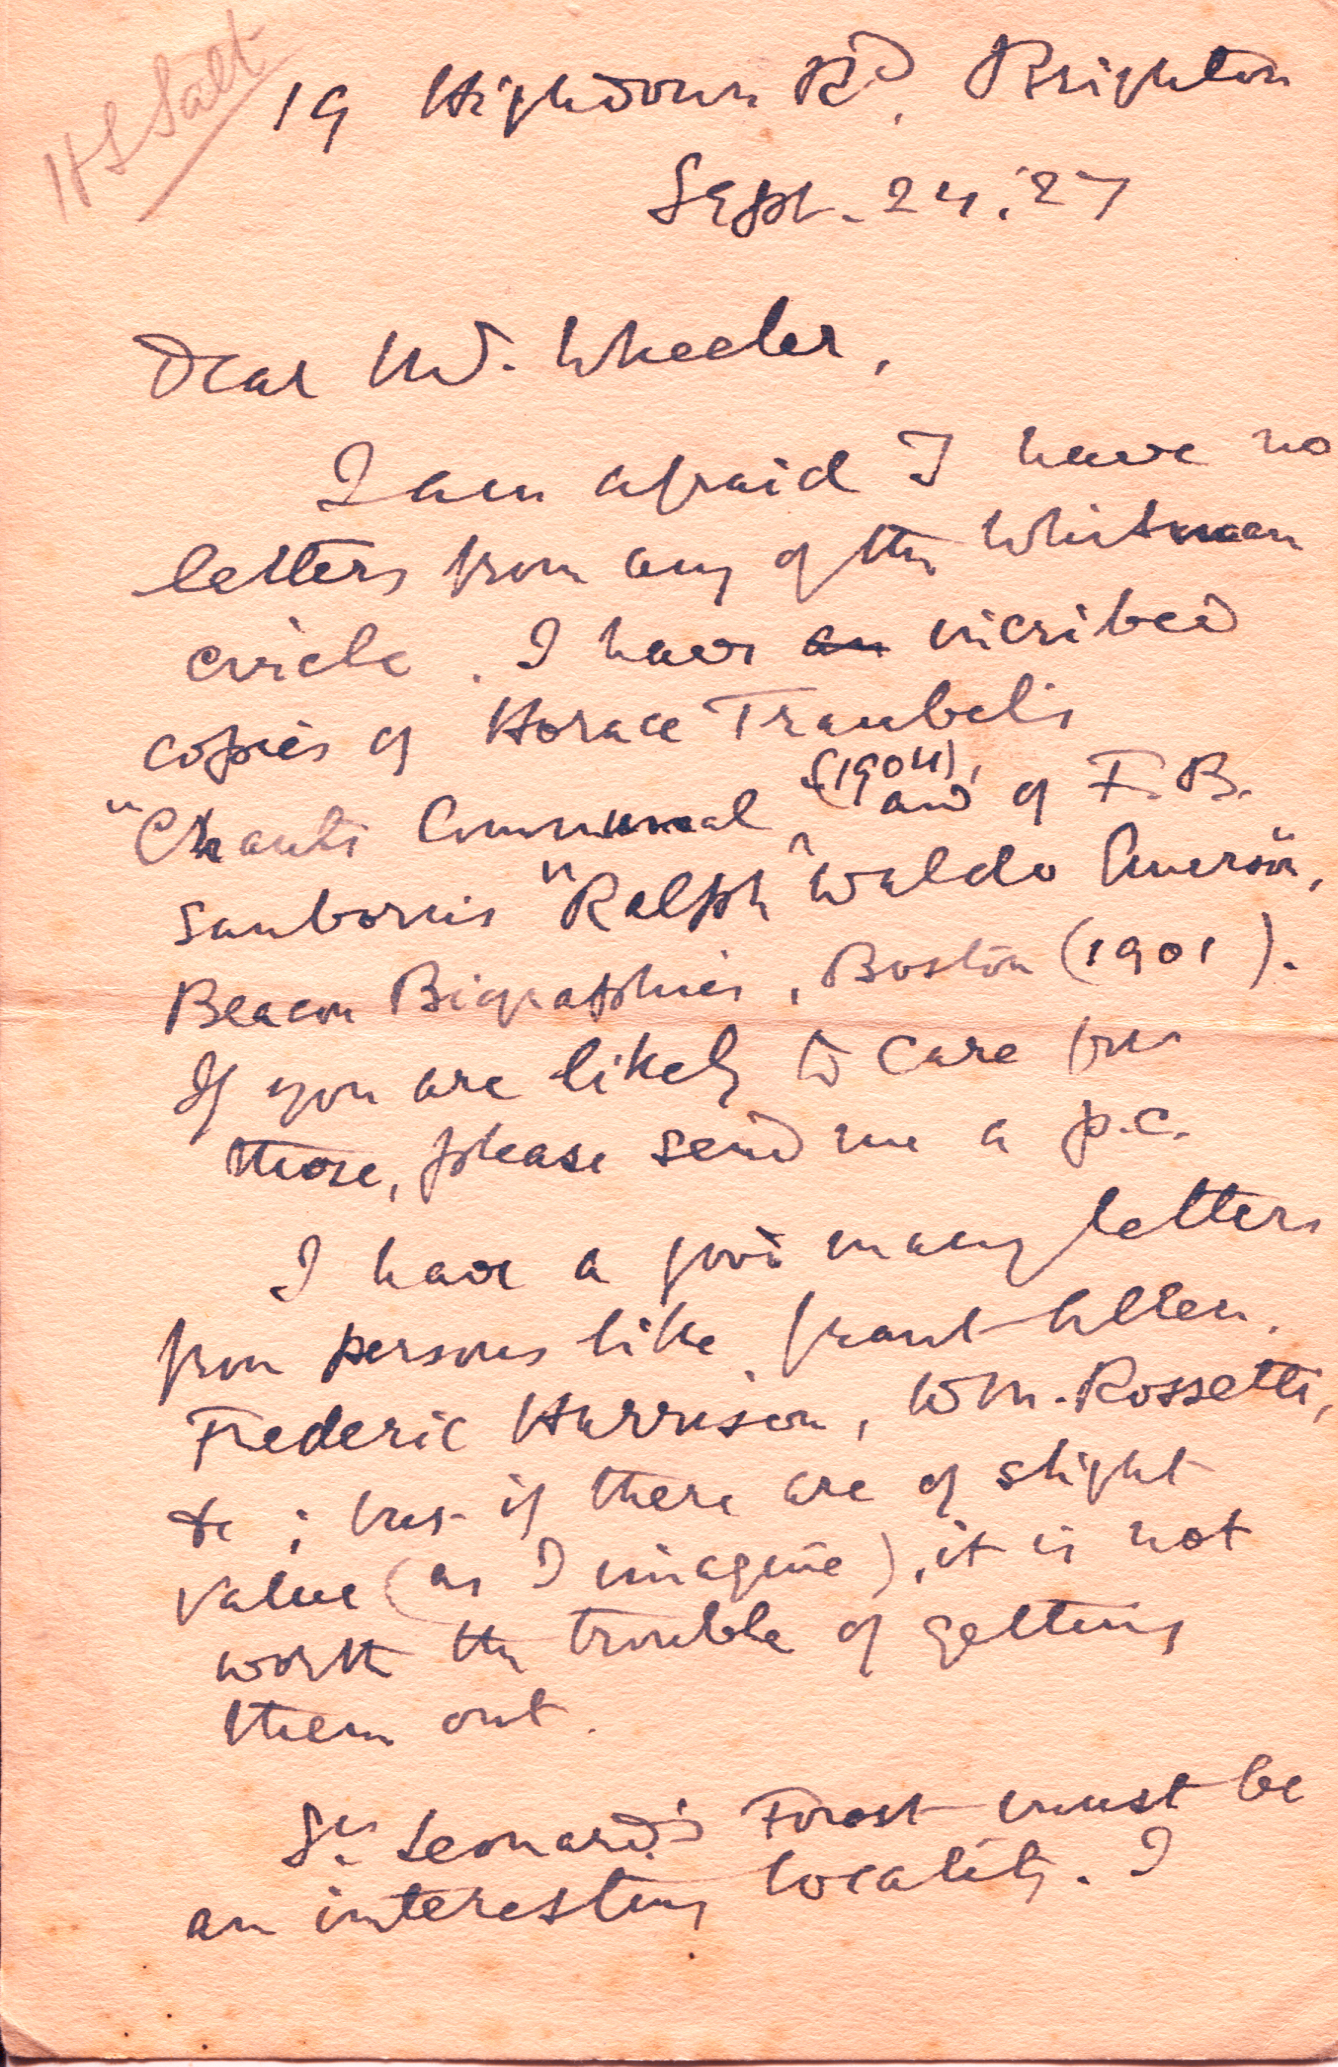 H S Salt
19 Highdown Rd, Brighton
Sept. 24. '27
Dear Mr. Wheeler,
I am afraid I have no
letters from any of the Whitman
circle. I have an inscribed
copies of Horace Traubel's
"Chants Communal, (1904), and of F. B.
Sanborn's "Ralph Waldo Emerson,
Beacon Biographies, Boston (1901).
If you are likely to care for
those, please send me a p.c.
I have a good many letters
from persons like Grant Allen,
Frederic Harrison, W M. Rossetti,
&c ; but if there are of slight
value (as I imagine), it is not
worth the trouble of getting
them out.
St. Leonard's Forest must be
an interesting locality. I